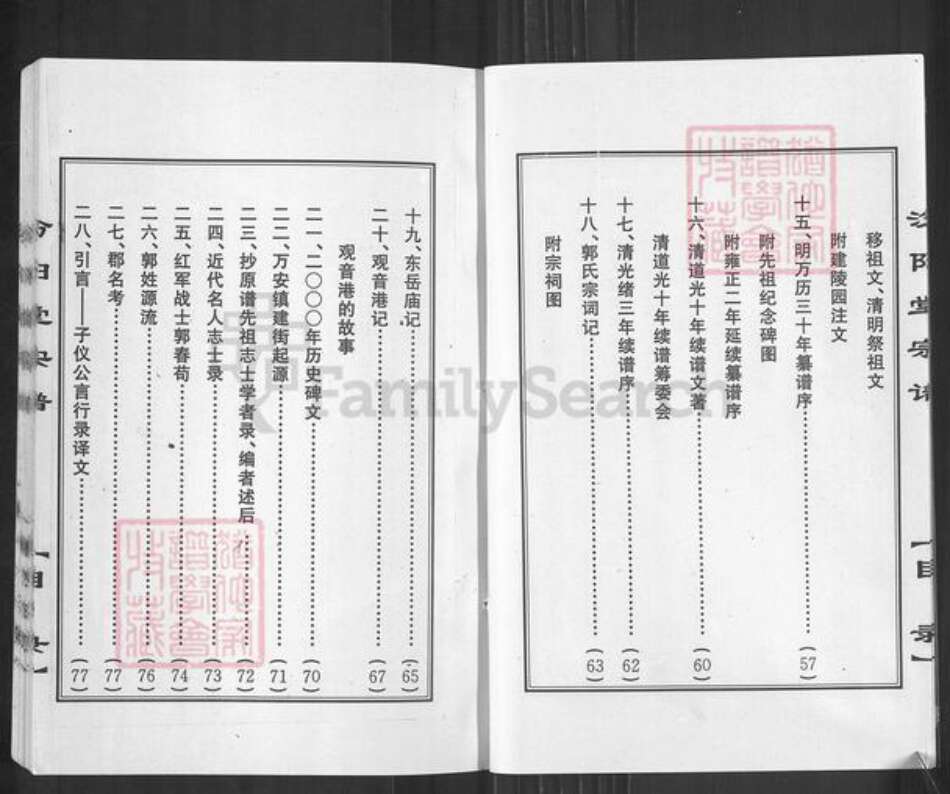 汾阳堂宗谱
【目录】
移祖文、清明祭祖文
附建陵园注文
十五、明万历三十年纂谱序(57)
附先祖纪念碑图
附雍正二年延续纂谱序
十六、清道光十年续谱文著(60)
清道光十年续谱筹委会
十七、清光绪三年续谱序(62)
十八、郭氏宗词记(63)
附宗祠图
十九、东岳庙记(65)
二十、观音港记(67)
观音港的故事
二一、二〇〇〇年历史碑文(70)
二二、万安镇建街起源(71)
二三、抄原谱先祖志士学者录、编者述后(72)
二四、近代名人志士录(73)
二五、红军战士郭春苟(74)
二六、郭姓源流(76)
二七、郡名考(77)
二八、引言——子仪公言行录译文(77)
汾阳堂宗谱
【目录】
FamilySearch